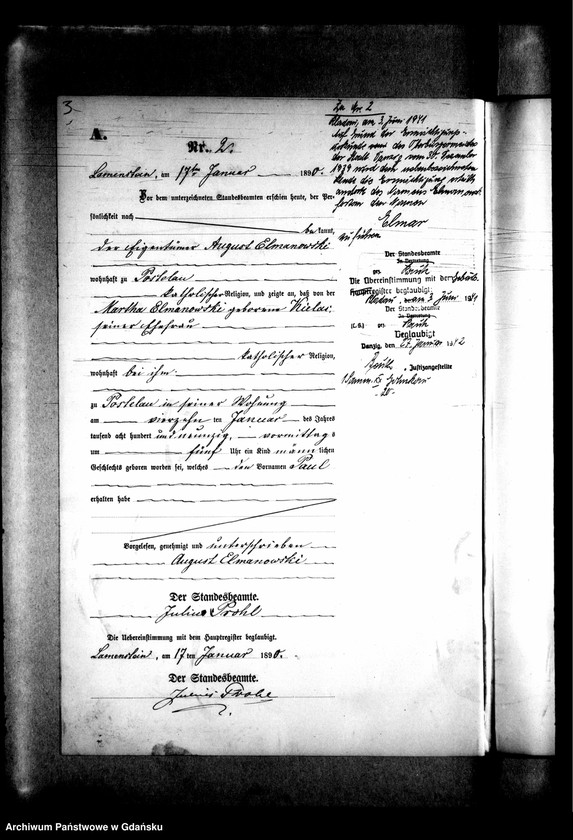 3
A.
Nr. 2.
Lamenstein, am 17ten Januar 1890.
Vor dem unterzeichneten Standesbeamten erschien heute, der Per-
sönlichkeit nach
bekannt,
der Eigentümer August Elmanowski
wohnhaft zu Postelau
katholischer Religion, und zeigte an, daß von der
Martha Elmanowski geborene Kielas,
seiner Ehefrau
katholischer Religion,
wohnhaft bei ihm
zu Postelau in seiner Wohnung
am vierzehn ten Januar des Jahres
tausend acht hundert und neunzig, vormittags
um fünf Uhr ein Kind männlichen
Geschlechts geboren worden sei, welches den Vornamen Paul
erhalten habe
Vorgelesen, genehmigt und unterschrieben
August Elmanowski
Der Standesbeamte.
Julius Prohl
Die Uebereinstimmung mit dem Hauptregister beglaubigt.
Lamenstein, am 17 ten Januar 1890.
Der Standesbeamte.
Julius Prohl
Zu Nr. 2
Kladau, am 3. Juni 1941
Auf Grund der Ermächtigungs-
der Stadt Danzig vom
1939 wird dem
die Ermächtigung erteilt
anstatt des Namens Elmanowski
fortan den Namen
Elmar
zu führen
Der Standesbeamte
In Vertretung
gez.
Die Übereinstimmung mit dem Geburts-
Hauptregister beglaubigt
Kladau, am 3. Juni 1941
Der Standesbeamte
In Vertretung
(L.S.) gez.
Beglaubigt
Danzig, den Januar 1942
, Justizangestellte
Archiwum Państwowe w Gdańsku